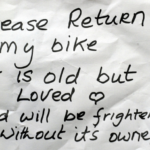 ease Return
my bike
t is old but
Loved ♡
d will be frighten
without its owne